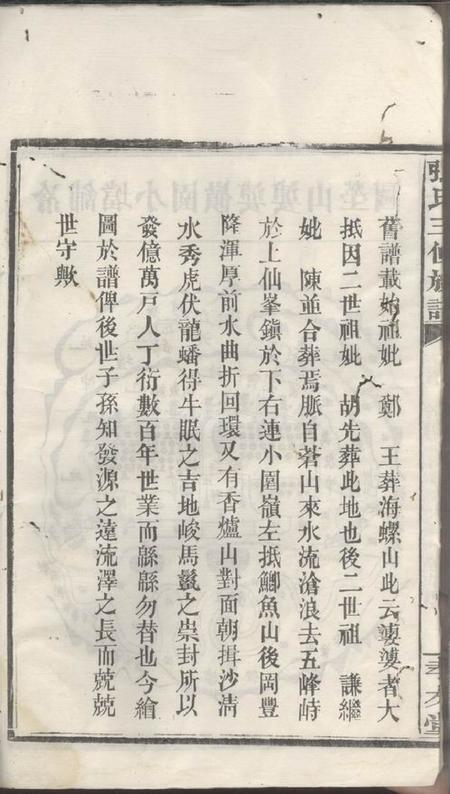 舊譜載始祖妣 鄭 王葬海螺山此云𦲷𦲷者大
抵因二世祖妣 胡先葬此地也後二世祖 謙繼
妣 陳並合葬焉脈自蒼山來水流滄浪去五峰峙
於上仙峯鎮於下右連小圍嶺左抵鯽魚山後岡豐
隆渾厚前水曲折回環又有香爐山對面朝揖沙清
水秀虎伏龍蟠得牛眠之吉地峻馬鬣之崇封所以
發億萬戸人丁衍數百年世業而緜緜勿替也今繪
圖於譜俾後世子孫知發源之遠流澤之長而兢兢
世守歟
張氏三修族譜
孝友堂